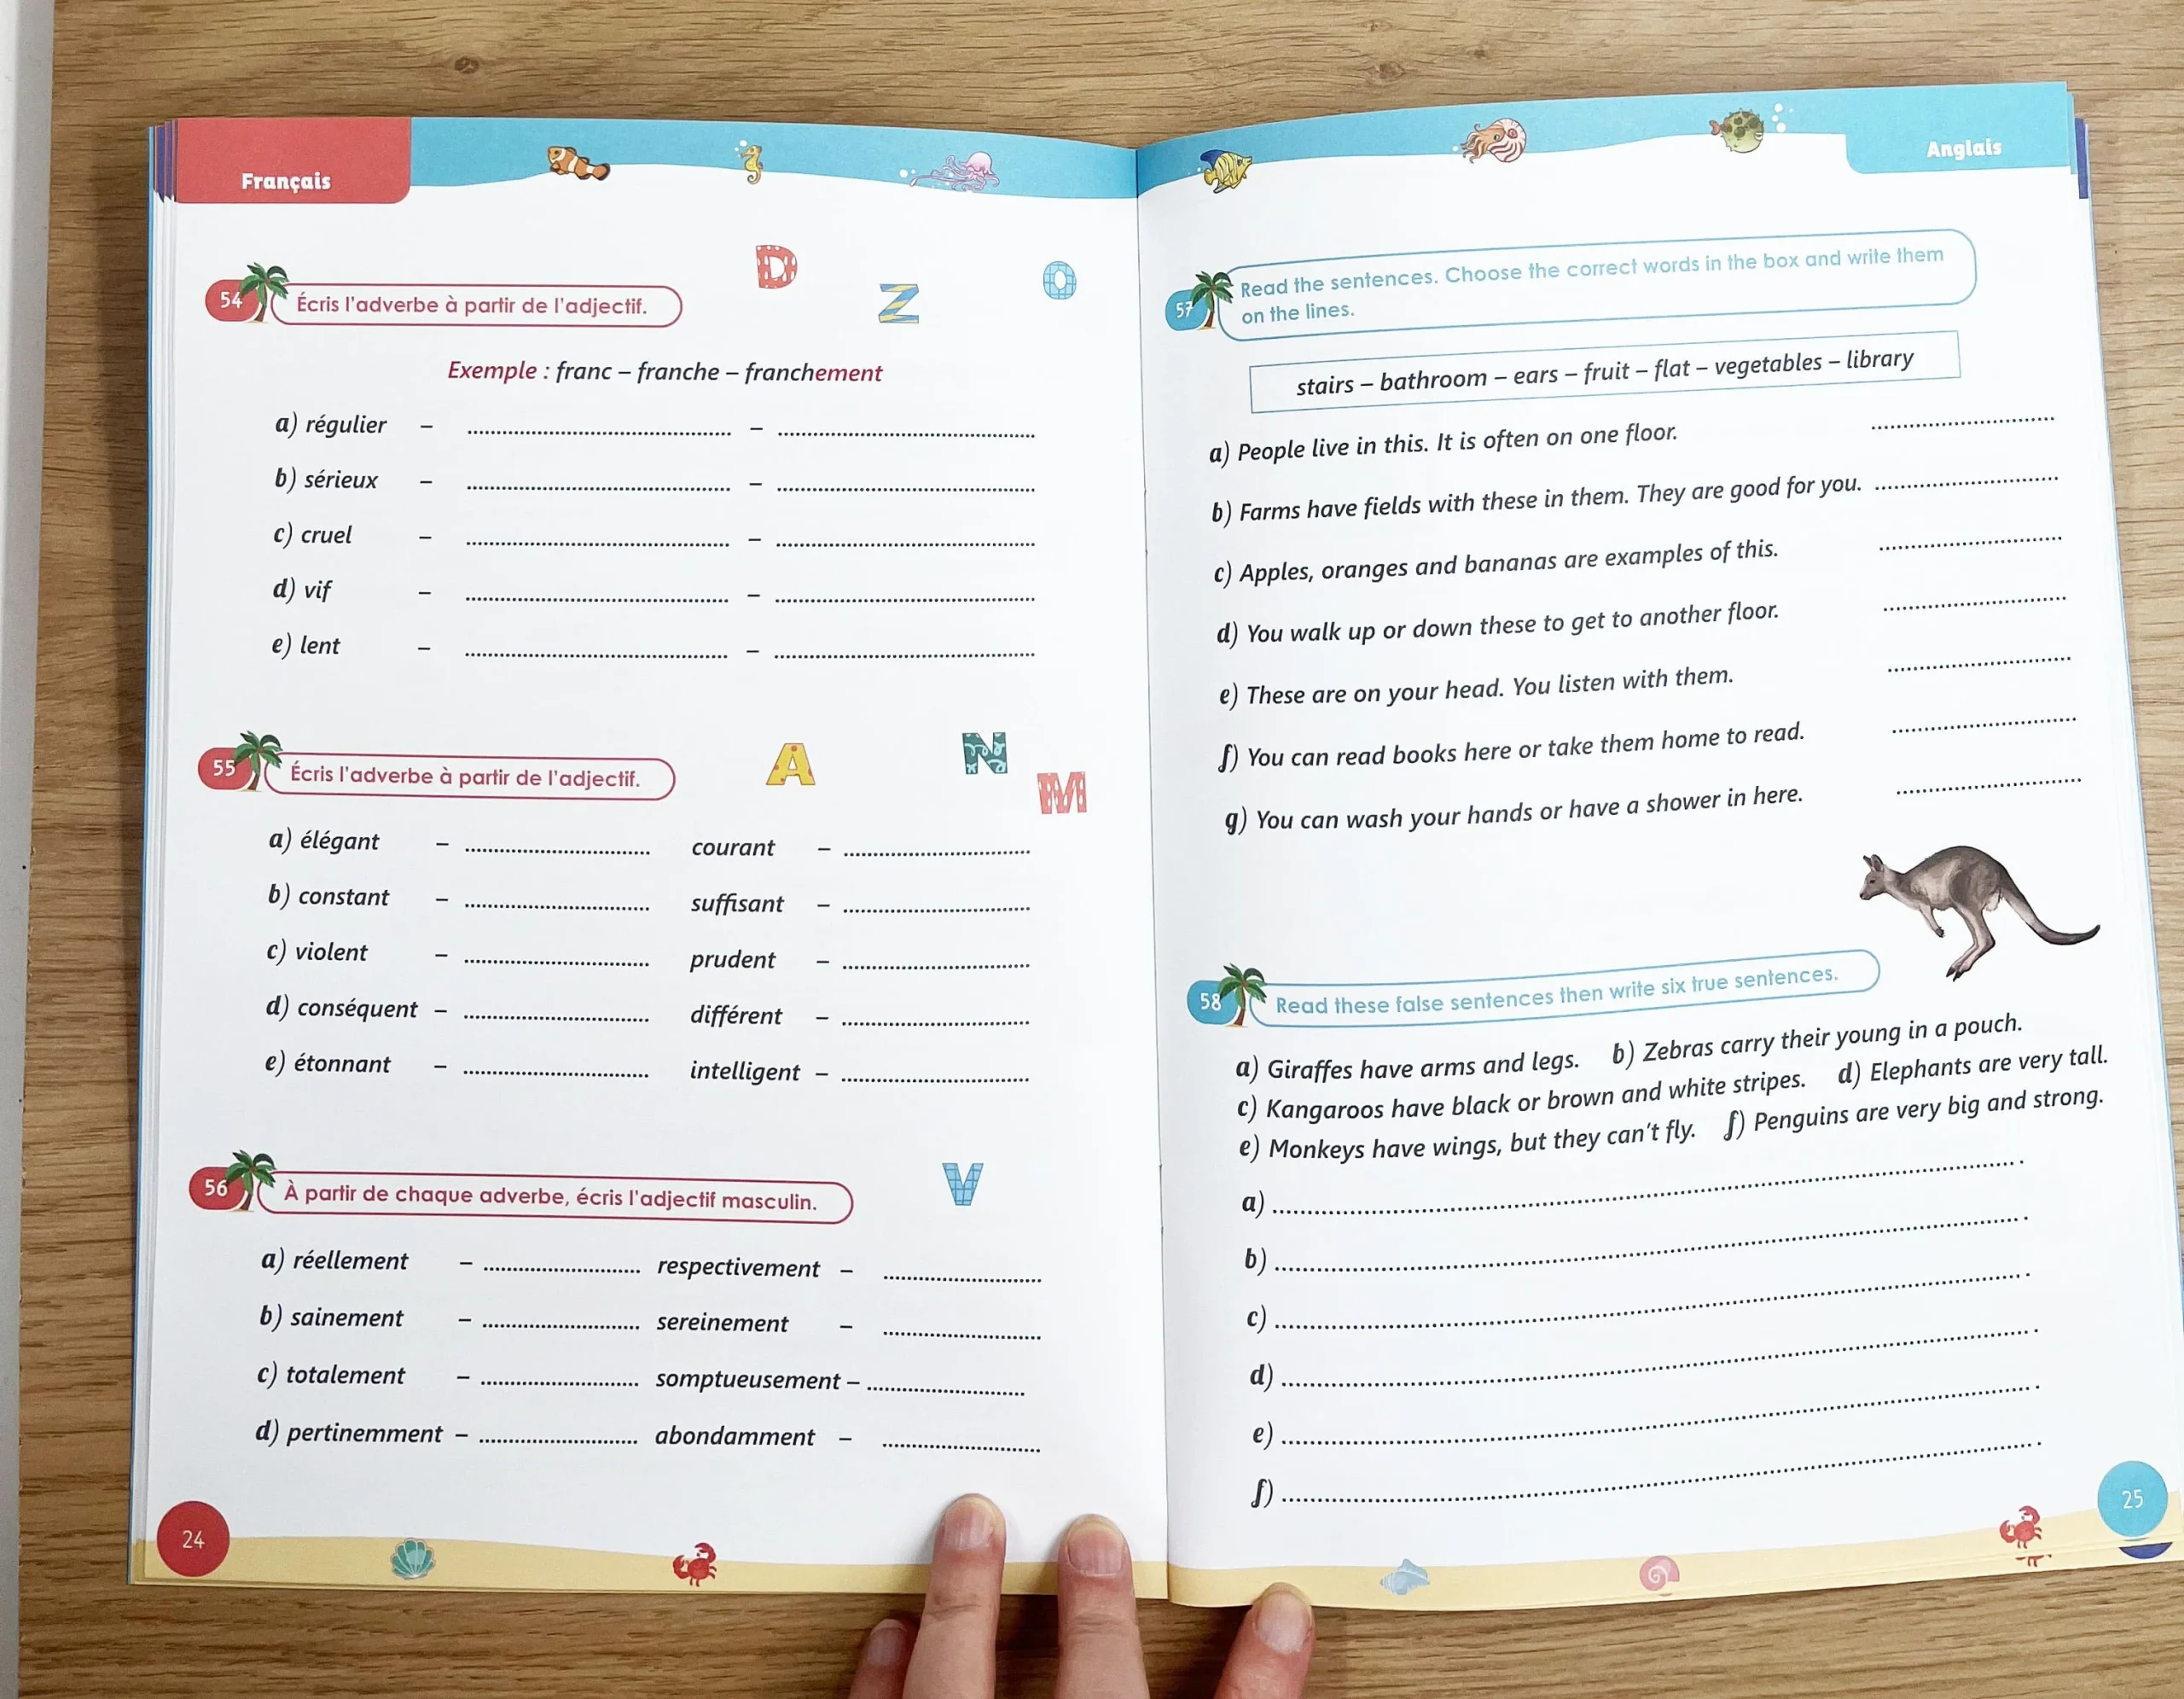 Français
54 Écris l'adverbe à partir de l'adjectif.
D Z O
Exemple : franc – franche – franchement
a) régulier – –
b) sérieux – –
c) cruel – –
d) vif – –
e) lent – –
55 Écris l'adverbe à partir de l'adjectif.
A N M
a) élégant – courant –
b) constant – suffisant –
c) violent – prudent –
d) conséquent – différent –
e) étonnant – intelligent –
56 À partir de chaque adverbe, écris l'adjectif masculin.
V
a) réellement – respectivement –
b) sainement – sereinement –
c) totalement – somptueusement –
d) pertinemment – abondamment –
24
Anglais
57 Read the sentences. Choose the correct words in the box and write them
on the lines.
stairs – bathroom – ears – fruit – flat – vegetables – library
a) People live in this. It is often on one floor.
b) Farms have fields with these in them. They are good for you.
c) Apples, oranges and bananas are examples of this.
d) You walk up or down these to get to another floor.
e) These are on your head. You listen with them.
f) You can read books here or take them home to read.
g) You can wash your hands or have a shower in here.
58 Read these false sentences then write six true sentences.
a) Giraffes have arms and legs. b) Zebras carry their young in a pouch.
c) Kangaroos have black or brown and white stripes. d) Elephants are very tall.
e) Monkeys have wings, but they can't fly. f) Penguins are very big and strong.
a) .
b) .
c) .
d) .
e) .
f) .
25